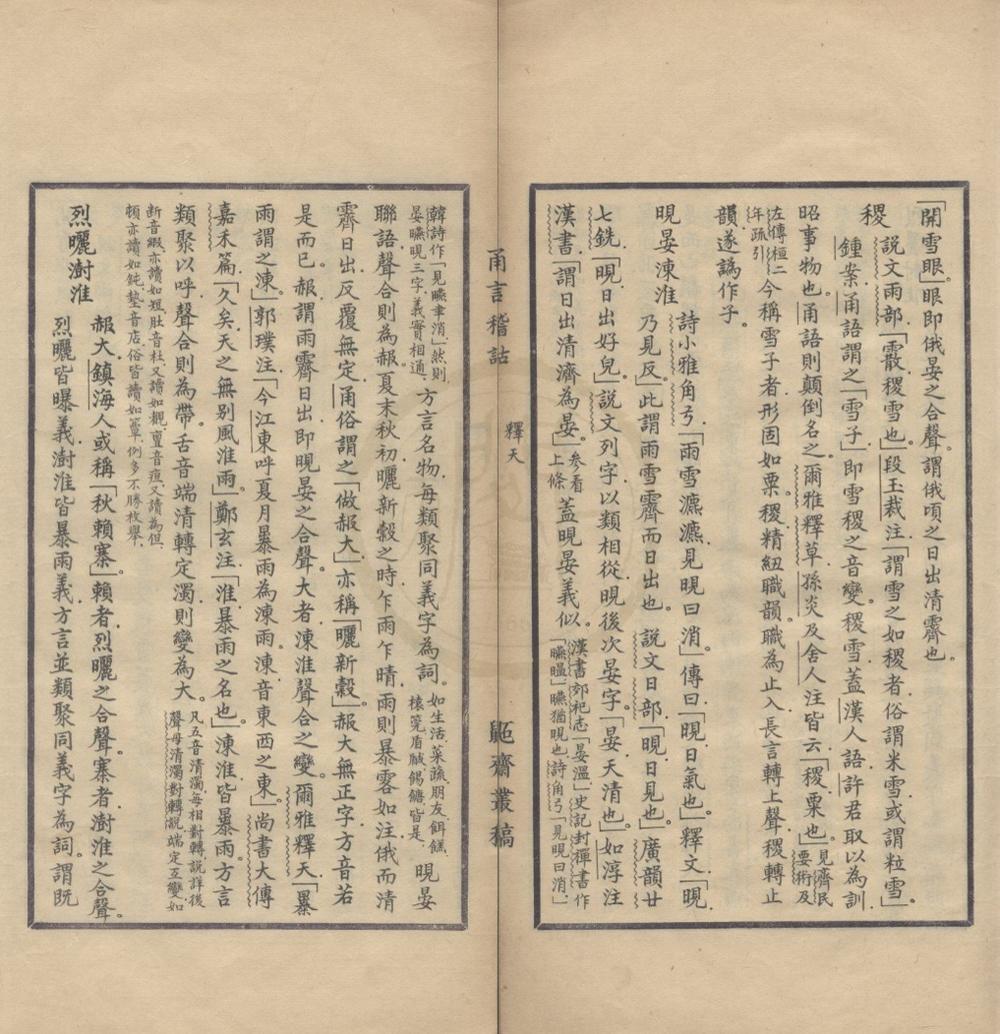 「開雪眼」眼即俄晏之合聲。謂俄頃之日出清霽也。
稷
說文雨部「霰稷雪也」段玉裁注「謂雪之如稷者俗謂米雪或謂粒雪」。
鍾案甬語謂之「雪子」即雪稷之音變。稷雪蓋漢人語許君取以為訓
昭事物也。甬語則顛倒名之。爾雅釋草孫炎及舍人注皆云「稷粟也」見齊民
要術及
左傳桓二
年疏引今稱雪子者形固如粟。稷精紐職韻。職為止入長言轉上聲稷轉止
韻遂譌作子。
晛晏涷淮
詩小雅角弓「雨雪瀌瀌見晛曰消」傳曰「晛日氣也」釋文「晛
乃見反」此謂雨雪霽而日出也。說文日部「晛日見也」廣韻廿
七銑「晛日出好皃」說文列字以類相從晛後次晏字「晏天清也」如淳注
漢書「謂日出清濟為晏」參看
上條蓋晛晏義似。漢書郊祀志「晏溫」史記封禪書作
「曣㬈」曣猶晛也詩角弓「見晛曰消」
甬言稽詁
釋天
甌齋叢稿
韓詩作「見曣聿消」然則
晏曣晛三字義實相通。方言名物每類聚同義字為詞。如生活菜蔬朋友餌餻
晛晏
聯語聲合則為赧。夏末秋初曬新穀之時乍雨乍晴雨則暴零如注俄而清
霽日出反覆無定甬俗謂之「做赧大」亦稱「曬新穀」赧大無正字方音若
是而已。赧謂雨霽日出即晛晏之合聲。大者涷淮聲合之變。爾雅釋天「暴
雨謂之涷」郭璞注「今江東呼夏月暴雨為涷雨。涷音東西之東」尚書大傳
嘉禾篇「久矣天之無別風淮雨」鄭玄注「淮暴雨之名也」涷淮皆暴雨。方言
類聚以呼聲合則為帶。舌音端清轉定濁則變為大。凡五音清濁每相對轉說詳後
聲母清濁對轉說端定互變如
斷音緞亦讀如短肚音杜又讀如覩亶音疸又讀為但
頓亦讀如鈍墊音店俗皆讀如簟例多不勝枚舉。
烈曬澍淮
赧大鎮海人或稱「秋賴寨」賴者烈曬之合聲。寨者澍淮之合聲。
烈曬皆曝義澍淮皆暴雨義。方言並類聚同義字為詞。謂既